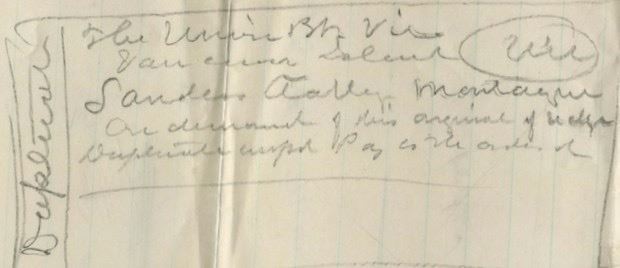 Duplicate
The Union Bk Vic
Vancouver Island
Vic
Sanders Montague
On demand of this original of
Duplicate unpd Pay to the order of